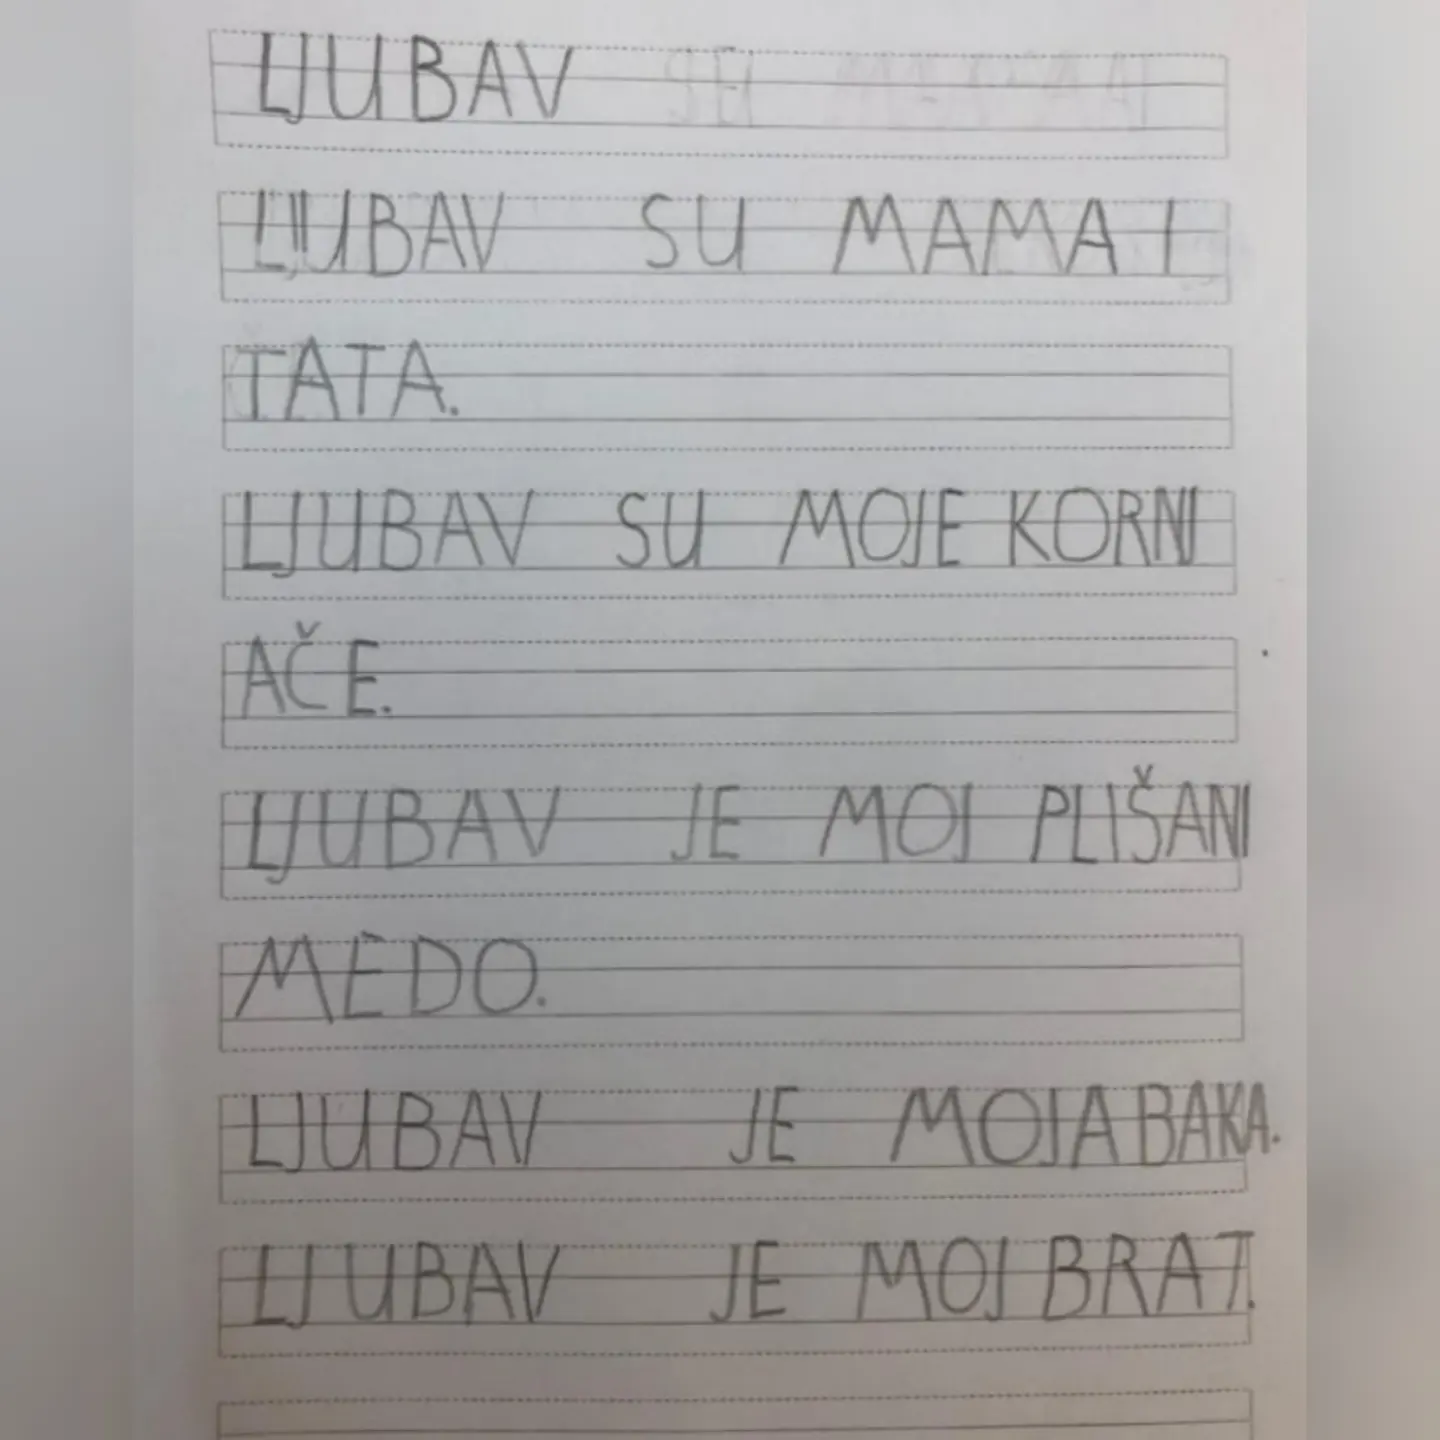 LJUBAV
LJUBAV SU MAMA I
TATA.
LJUBAV SU MOJE KORNJ
AČE.
LJUBAV JE MOJ PLIŠANI
MEDO.
LJUBAV JE MOJA BAKA.
LJUBAV JE MOJ BRAT.